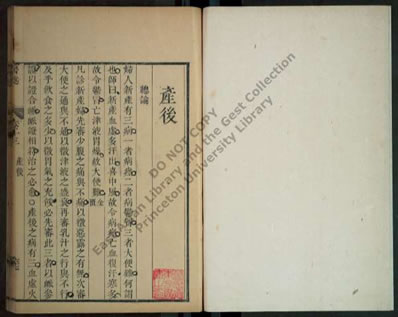 產後
總論
婦人新產有三病一者病痙二者病鬱冒三者大便難何謂
也師曰新產血虛多汗出喜中風故令病痙亡血復汗寒多
故令鬱冒亡津液胃燥故大便難金匱
凡診新產婦先審少腹之痛與不痛以徵惡露之有無次審
大便之通與不通以徵津液之盛衰再審乳汁之行與不行
及乎飲食之多少以徵胃氣之充餒必先審此三者以脈參
證以證合脈脈證相符治之必愈產後之病有三血虛火
產後
DO NOT COPY
East Asian Library and the Gest Collection
Princeton University Library